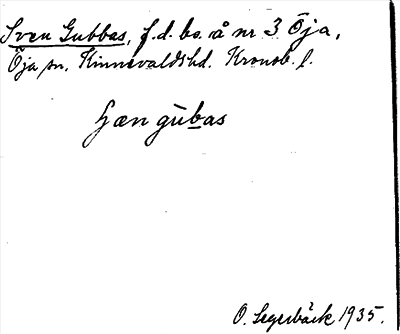 Sven Gubbas, f.d. bo. å nr 3 Öja,
Öja sn. Kinnevaldshd. Kronob. l.
gubas
O. Segerbäck 1935.